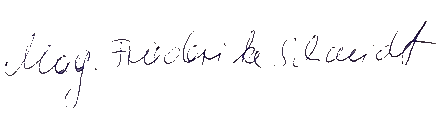 Mag. Friederike Schmidt